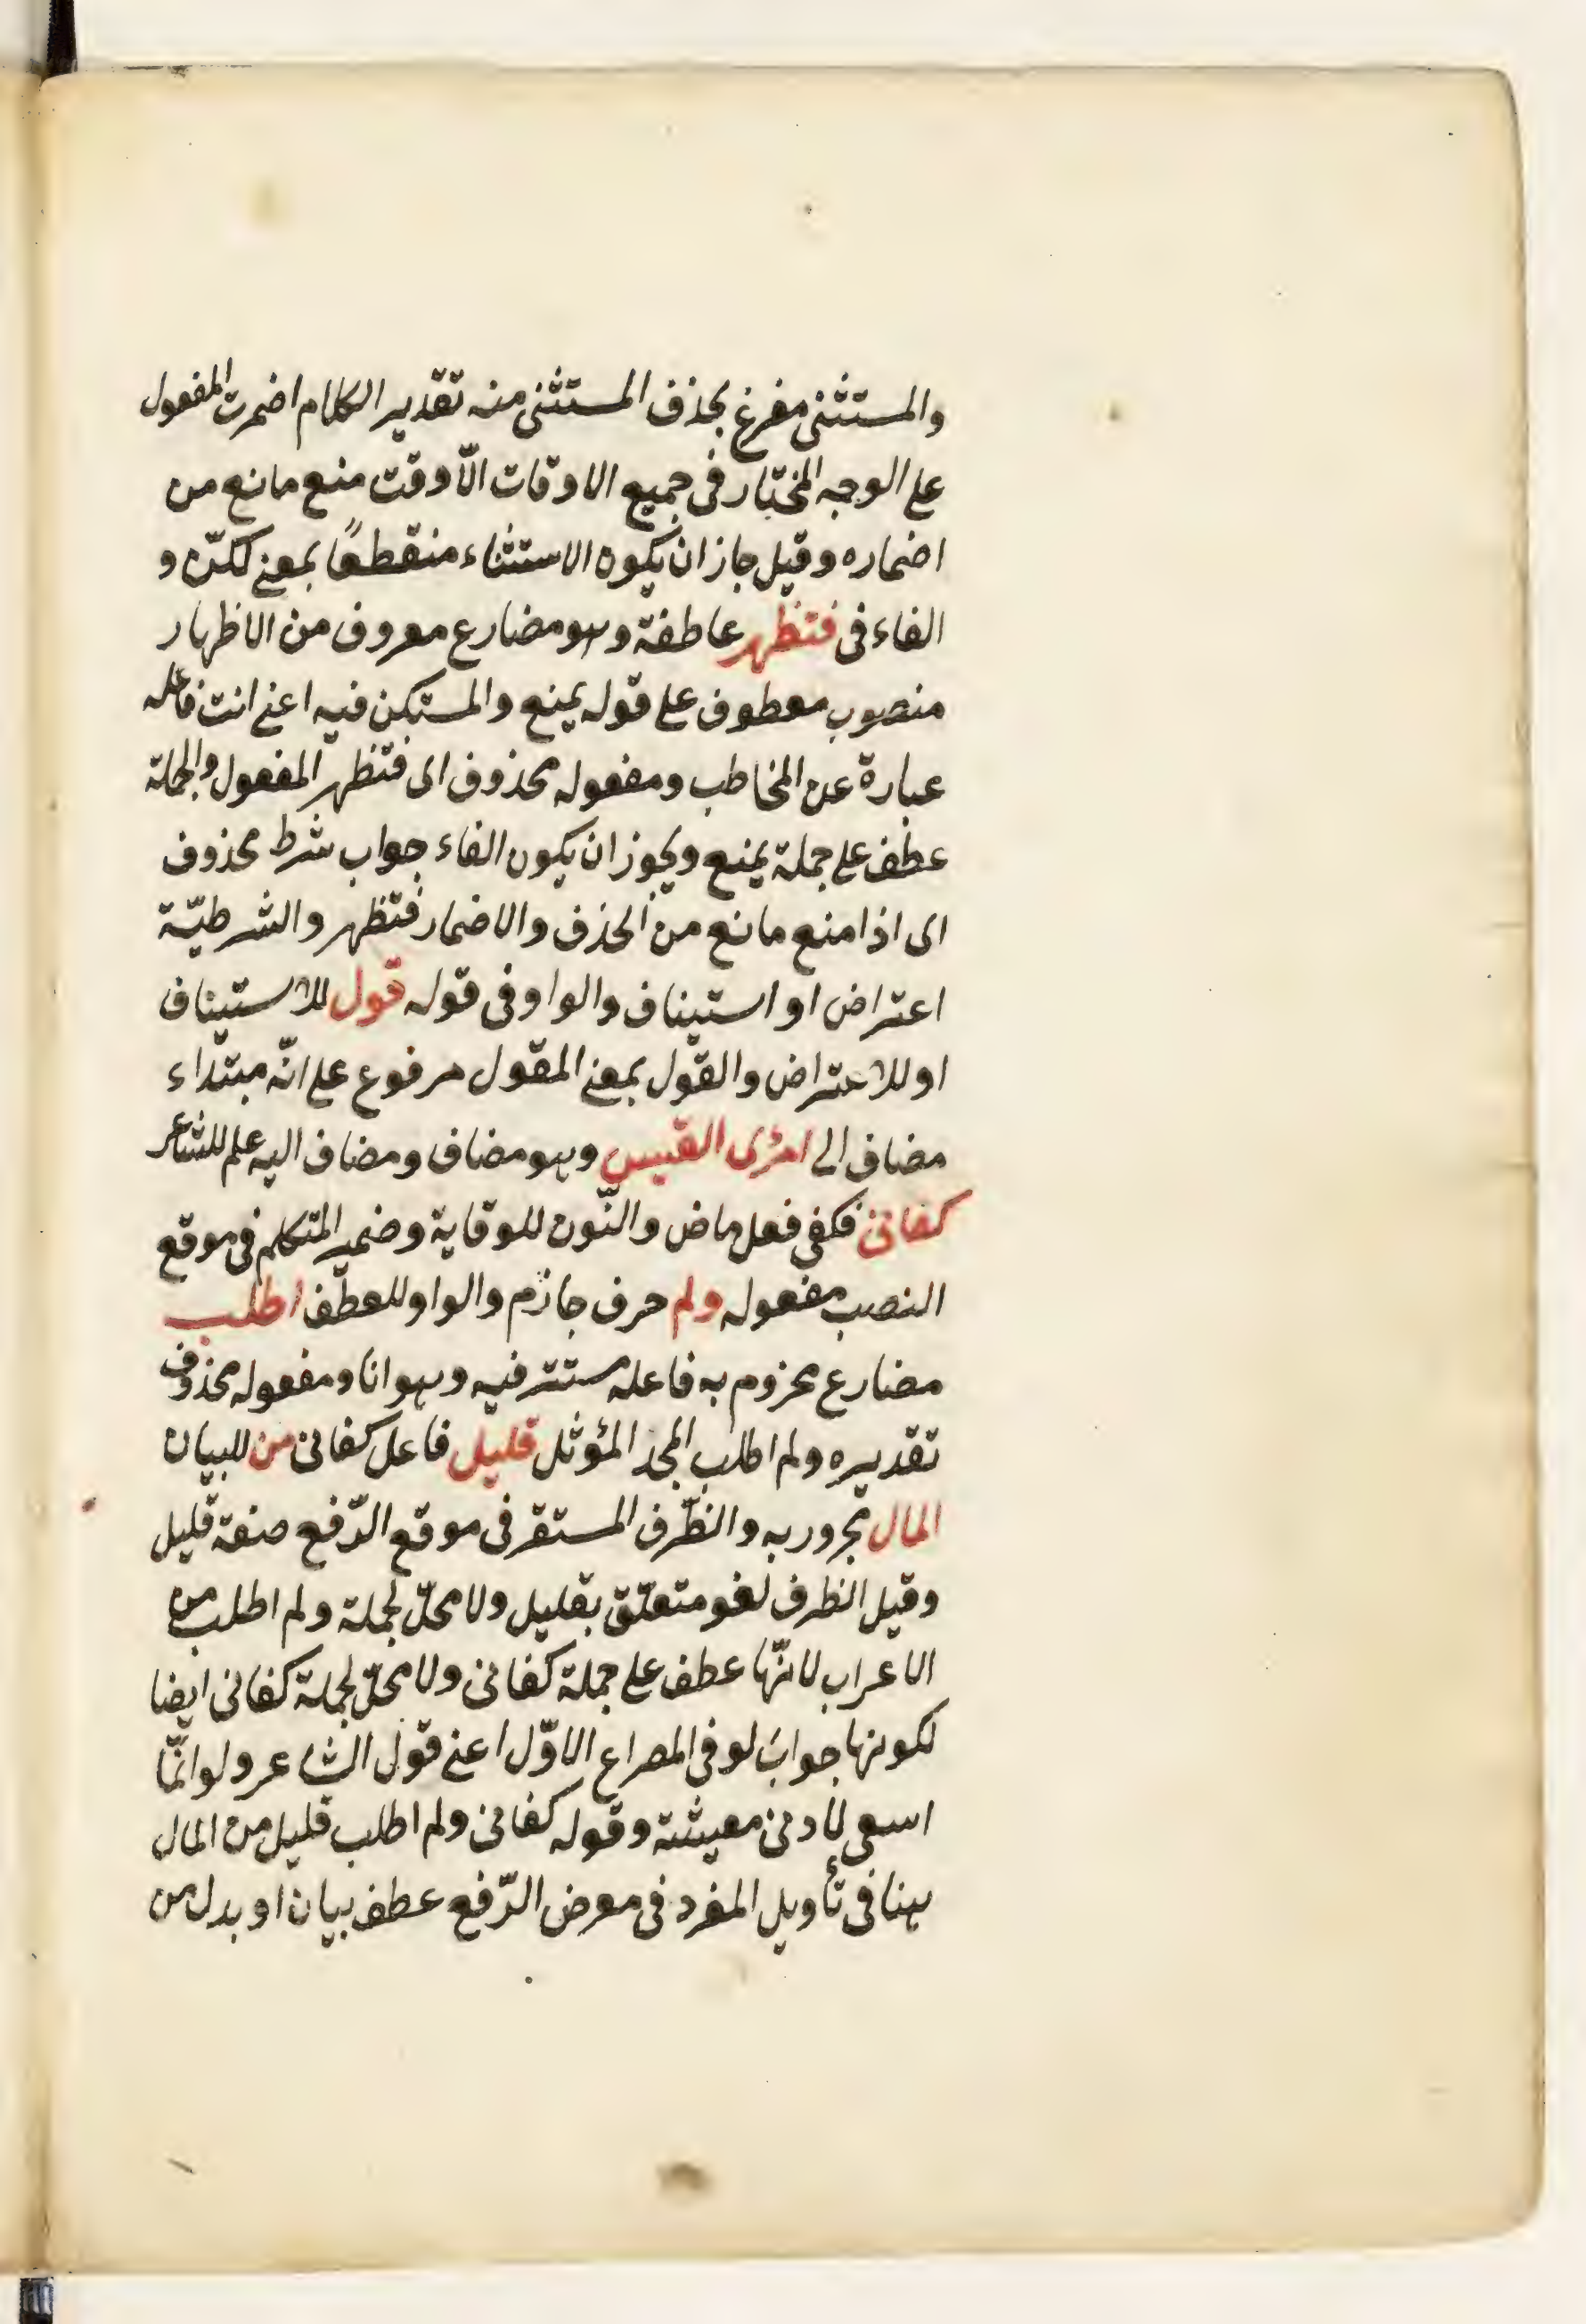 والمستثنى مفرغ بحذف المستثنى منه تقدير الكلام اضمرت المفعول
على الوجه المختار فى جميع الاوقات الّا وقت منع مانع من
اضماره وقيل جاز ان يكون الاستثناء منقطعًا بمعنى لكنّ و
الفاء فى فتظهر عاطفة وهو مضارع معروف من الاظهار
منصوب معطوف على قوله يمنع والمستكن فيه اعنى انت فاعله
عبارة عن المخاطب ومفعوله محذوف اى فتظهر المفعول والجملة
عطف على جملة يمنع ويجوز ان يكون الفاء جواب شرط محذوف
اى اذا منع مانع من الحذف والاضمار فتظهر والشرطيّة
اعتراض او استيناف والواو فى قوله قول للاستيناف
او للاعتراض والقول بمعنى المقول مرفوع على انّه مبتداء
مضاف الى امرئ القيس وهو مضاف ومضاف اليه علم للشاعر
كفانى فكفى فعل ماض والنّون للوقاية وضمير المتكلم فى موقع
النصب مفعوله ولم حرف جازم والواو للعطف اطلب
مضارع مجزوم به فاعله مستتر فيه وهو انا ومفعوله محذوف
تقديره ولم اطلب المجد المؤثل قليل فاعل كفانى من للبيان
المال مجرور به والظّرف المستقر فى موقع الرّفع صفة قليل
وقيل الظرف لغو متعلّق بقليل ولا محلّ لجملة ولم اطلب من
الاعراب لانّها عطف على جملة كفانى ولا محلّ لجملة كفانى ايضا
لكونها جوابَ لو فى المصراع الاوّل اعنى قول الشاعر ولو انّما
اسعى لادنى معيشة وقوله كفانى ولم اطلب قليل من المال
ههنا فى تأويل المفرد فى معرض الرّفع عطف بيان او بدل من